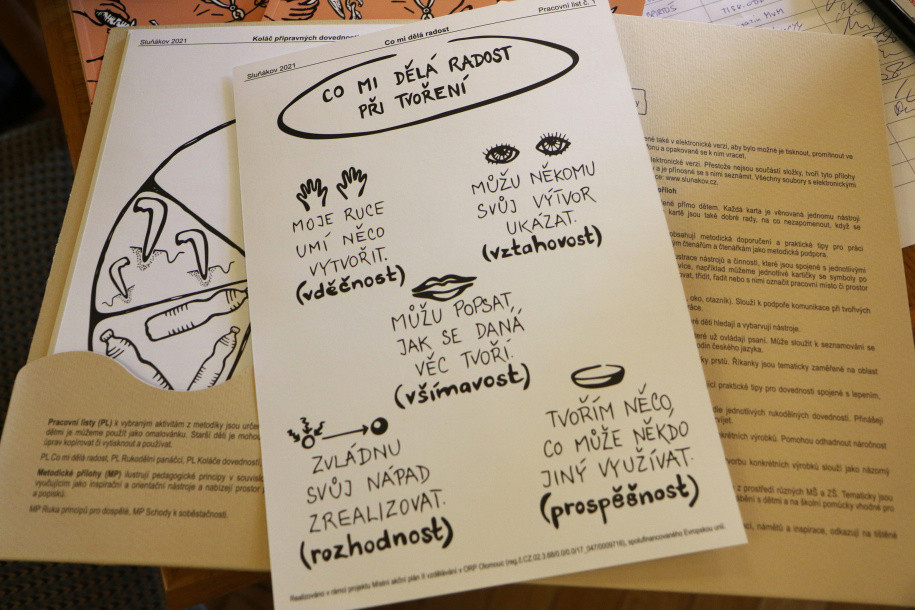 Sluňákov 2021
Koláč přípravných dovedností
Sluňákov 2021
Co mi dělá radost
Pracovní list č. 1
CO MI DĚLÁ RADOST
PŘI TVOŘENÍ
MOJE RUCE
UMÍ NĚCO
VYTVOŘIT.
(vděčnost)
MŮŽU NĚKOMU
SVŮJ VÝTVOR
UKÁZAT.
(vztahovost)
MŮŽU POPSAT,
JAK SE DANÁ
VĚC TVOŘÍ.
(všímavost)
ZVLÁDNU
SVŮJ NÁPAD
ZREALIZOVAT.
(rozhodnost)
TVOŘÍM NĚCO,
CO MŮŽE NĚKDO
JINÝ VYUŽÍVAT.
(prospěšnost)
Realizováno v rámci projektu Místní akční plán II vzdělávání v ORP Olomouc (reg.č.CZ.02.3.68/0.0/0.0/17_047/0009716), spolufinancovaného Evropskou unií.
Pracovní listy (PL) k vybraným aktivitám z metodiky jsou urče
dětmi je můžeme použít jako omalovánku. Starší děti je mohou
úprav kopírovat či vytisknout a používat.
PL Co mi dělá radost, PL Rukodělní panáčci, PL Koláče dovedností,
Metodické přílohy (MP) ilustrují pedagogické principy v souvislo
vyučujícím jako inspirační a orientační nástroje a nabízejí prostor
a popisků.
MP Ruka principů pro dospělé, MP Schody k soběstačnosti.
také v elektronické verzi, aby bylo možné je tisknout, promítnout ve
a opakovaně se k nim vracet.
elektronické verzi. Přestože nejsou součástí složky, tvoří tyto přílohy
a je přínosné se s nimi seznámit. Všechny soubory s elektronickými
www.slunakov.cz.
příloh
přímo dětem. Každá karta je věnovaná jednomu nástroji
kartě jsou také dobré rady, na co nezapomenout, když se
obsahují metodická doporučení a praktické tipy pro práci
čtenářům a čtenářkám jako metodická podpora.
ilustrace nástrojů a činností, které jsou spojené s jednotlivými
více, například můžeme jednotlivé kartičky se symboly po
třídit, řadit nebo s nimi označit pracovní místo či prostor
oko, otazník). Slouží k podpoře komunikace při tvořivých
děti hledají a vybarvují nástroje.
už ovládají psaní. Může sloužit k seznamování se
hodin českého jazyka.
prstů. Říkanky jsou tematicky zaměřené na oblast
praktické tipy pro dovednosti spojené s lepením,
dle jednotlivých rukodělných dovedností. Přinášejí
konkrétních výrobků. Pomohou odhadnout náročnost
tvorbu konkrétních výrobků slouží jako názorný
z prostředí různých MŠ a ZŠ. Tematicky jsou
s dětmi a na školní pomůcky vhodné pro
námětů a inspirace, odkazují na tištěné